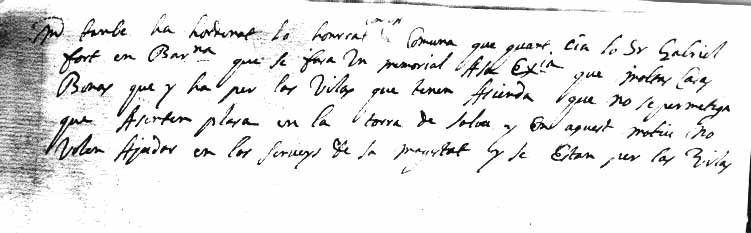 tambe ha hordenat lo honrat comun Comuna que quant sia lo Sr Gabriel
fort en Barna que se fara Un memorial A sa Exia que moltas Casas
Bonas que y ha per las Vilas que tenen Asienda que no se permetega
que Asenten plasa en la torra de Salou y en aquest motiu no
Volen Ajudar en los serveys de sa magestat y se Estan per las Vilas